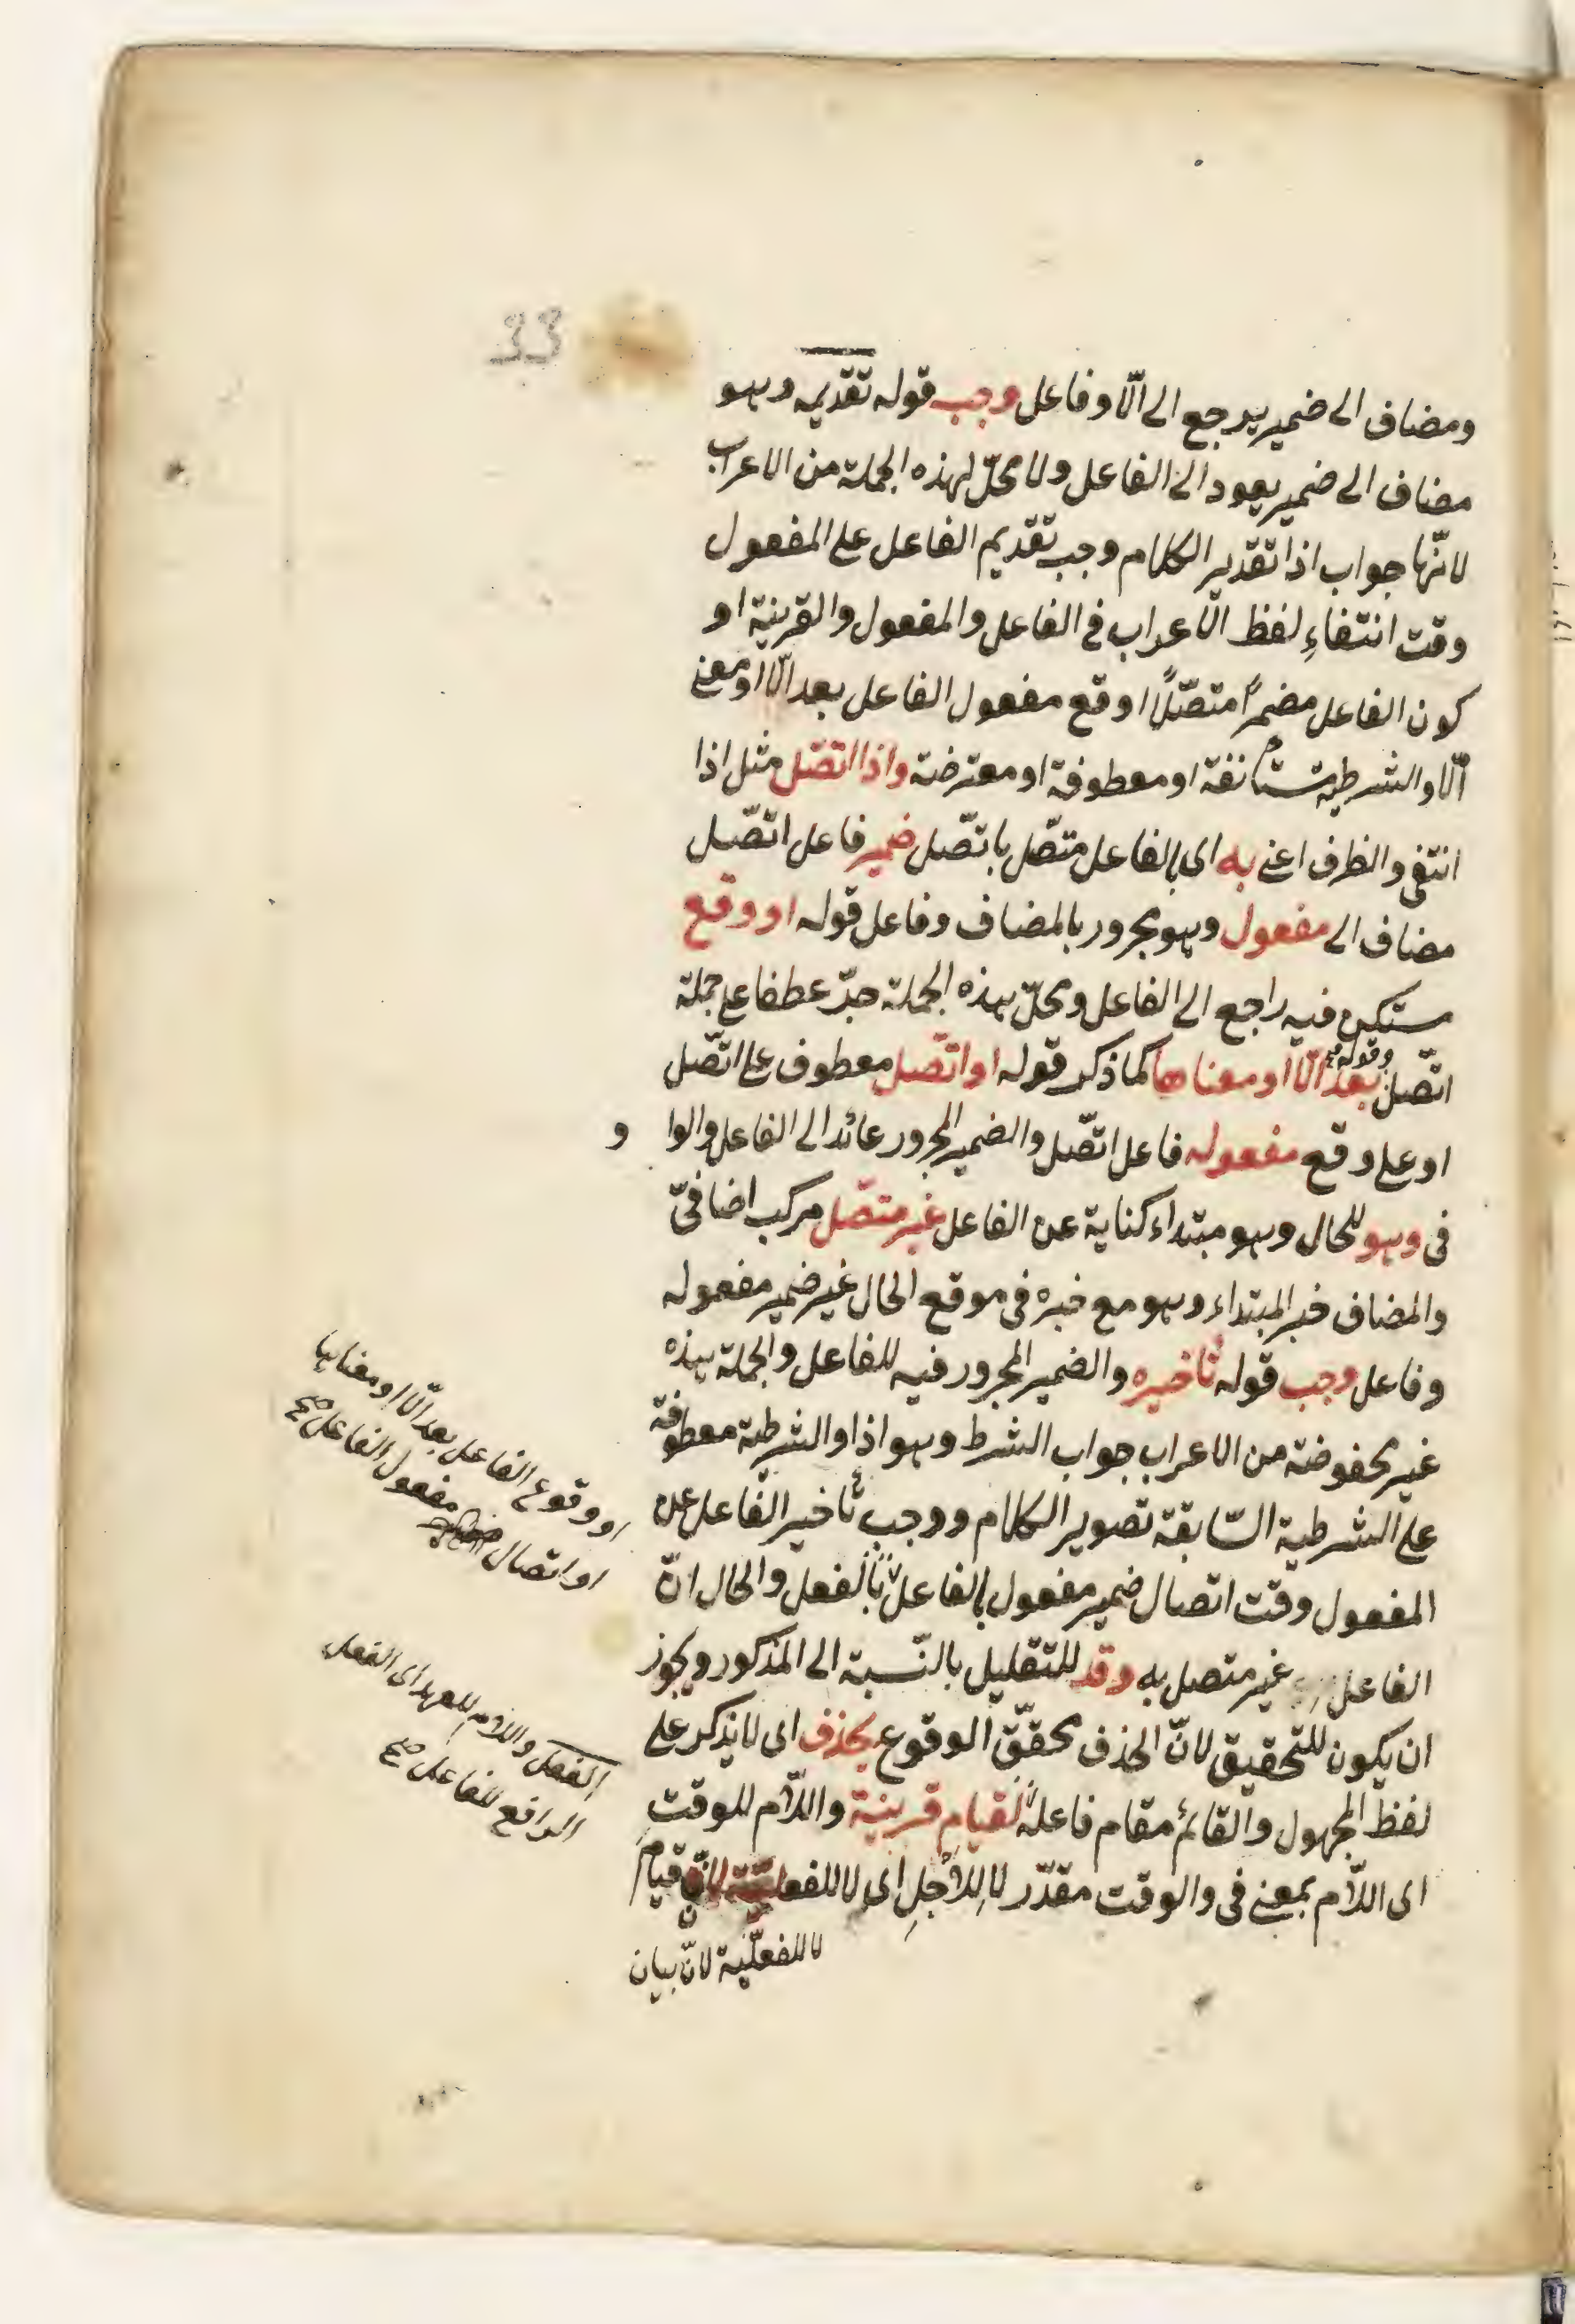 33
ومضاف الى ضمير يرجع الى الّا وفاعل وجب قوله تقديمه وهو
مضاف الى ضمير يعود الى الفاعل ولا محلّ لهذه الجملة من الاعراب
لانّها جواب اذا تقدير الكلام وجب تقديم الفاعل على المفعول
وقت انتفاءِ لفظ الاعراب فى الفاعل والمفعول والقرينة او
كون الفاعل مضمراً متصّلاً او قع مفعول الفاعل بعد الّا او معنى
الّا والشرطية مستأنفة او معطوفة او معترضة واذا اتصّل مثل اذا
انتفى والظرف اعنى به اى بالفاعل متصّل باتصّل ضمير فاعل اتصّل
مضاف الى مفعول وهو مجرور بالمضاف وفاعل قوله او وقع
مستكن فيه راجع الى الفاعل ومحلّ هذه الجملة جرّ عطفا على جملة
اتصّل وقوله بعد الّا او معناها كما ذكر قوله او اتصّل معطوف على اتصّل
او على وقع مفعوله فاعل اتصّل والضمير المجرور عائد الى الفاعل والوا و
فى وهو للحال وهو مبتداء كناية عن الفاعل غير متصّل مركب اضافىّ
والمضاف خبر المبتداء وهو مع خبره فى موقع الحال غير ضمير مفعوله
وفاعل وجب قوله تأخيره والضمير المجرور فيه للفاعل والجملة هذه
غير محفوضة من الاعراب جواب الشرط وهو اذا والشرطية معطوفة
على الشرطية السّابقة تصوير الكلام ووجب تأخير الفاعل عن
المفعول وقت اتصال ضمير مفعول بالفاعل بالفعل والحال انّ
الفاعل غير متصل به وقد للتقليل بالنّسبة الى المذكور ويجوز
ان يكون للتحقيق لانّ الحذف محققّ الوقوع يحذف اى لا يذكر على
لفظ المجهول والقائم مقام فاعله لقيام قرينة واللّام للوقت
اى اللّام بمعنى فى والوقت مقدّر لا للاجلِ اى لا للفعليّة لانّ قيام
لا للفعليّة لانّ بيان
او وقوع الفاعل بعد الّا او معناها
او اتصال مفعول الفاعل صح
الفعل واللام للعهد اى الفعل
الرافع للفاعل صح